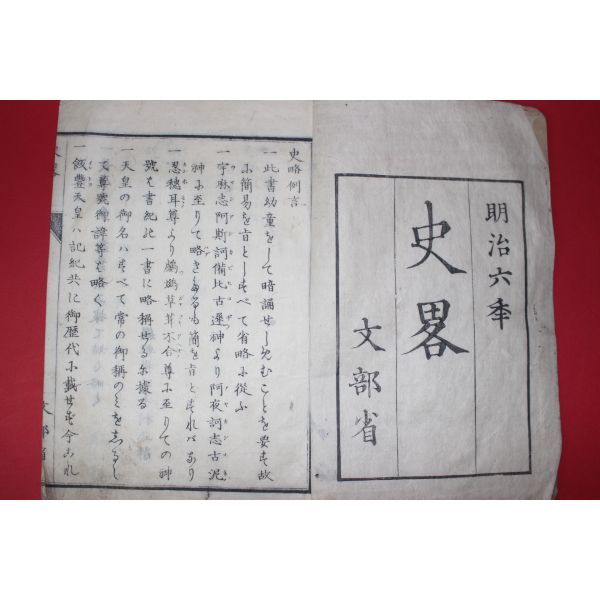 明治六年
史畧
文部省
史略例言
一此書幼童をして暗誦せしむることを要す故
に簡易を旨としすべて省略に從ふ
一宇麻志阿斯訶備比古遲神より阿夜訶志古泥
神に至りて略きたるも簡を旨とすればなり
一忍穗耳尊より鸕鷀草葺不合尊に至りての神
號は書紀此一書に略稱せるに據る
一天皇の御名ハすべて常の御稱のミをしるし
又尊號御諱等を略く
一飯豐天皇ハ記紀共に御歴代に載せず今これ
文部省